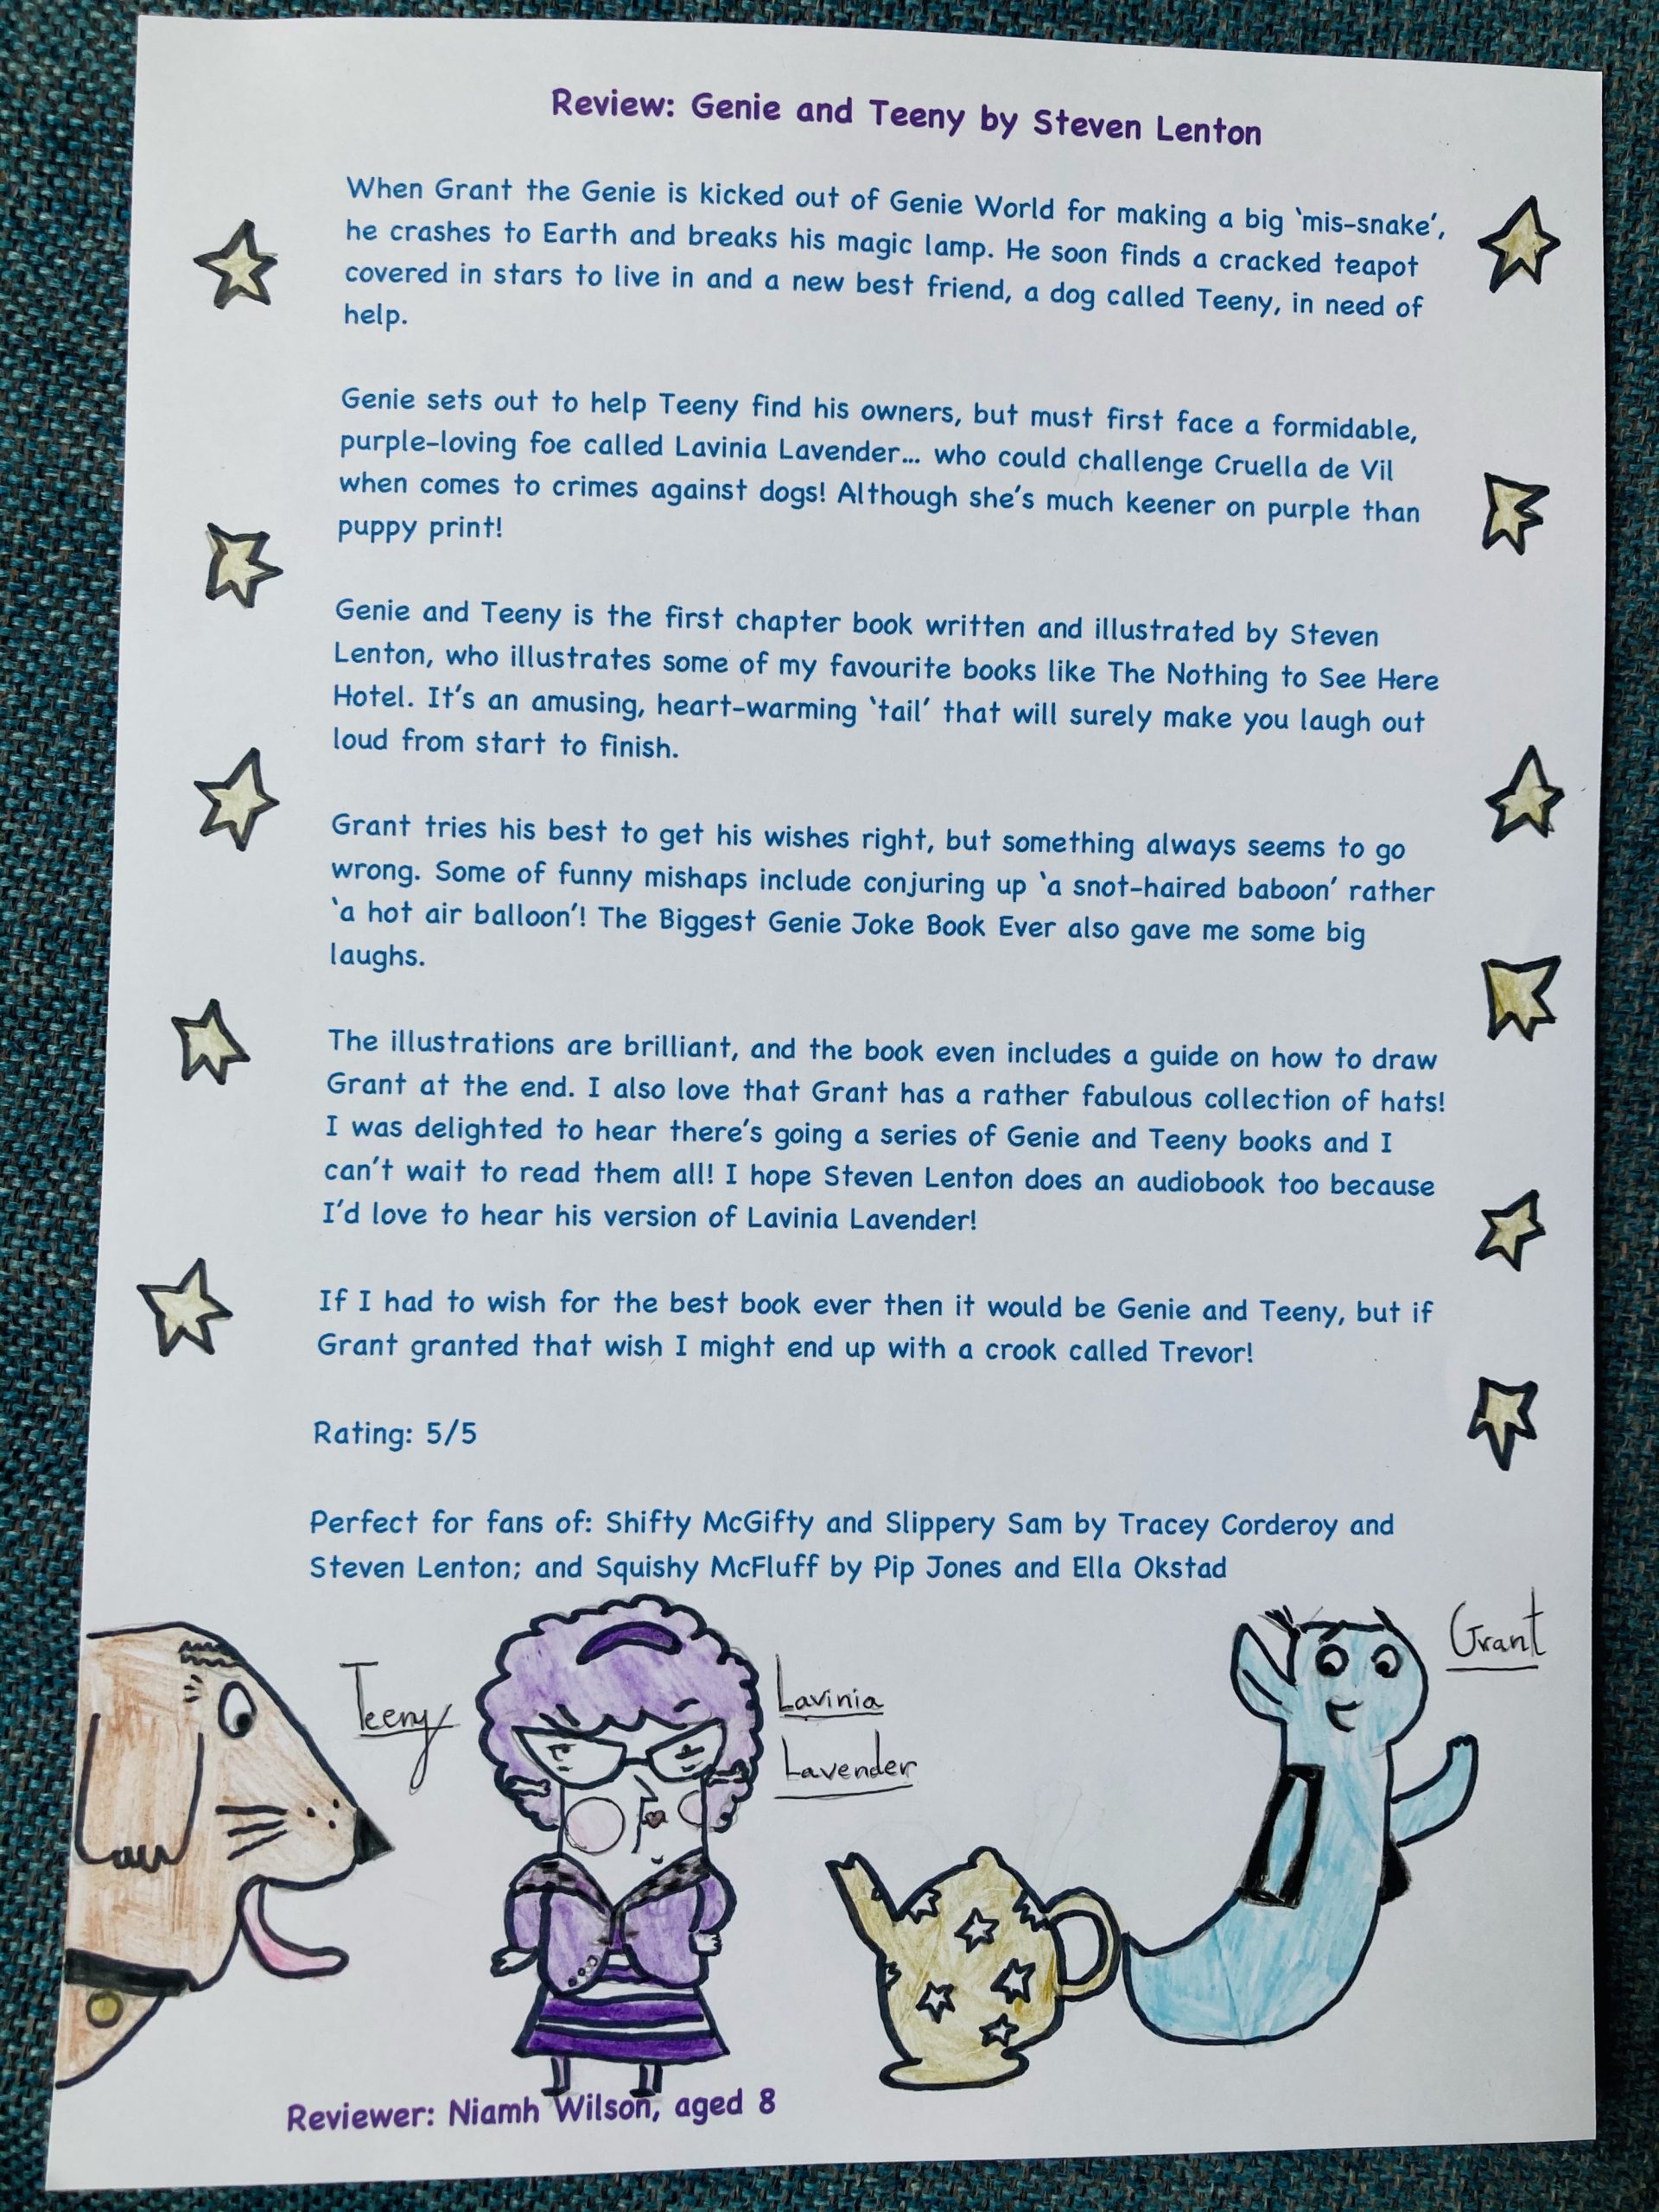 Review: Genie and Teeny by Steven Lenton
When Grant the Genie is kicked out of Genie World for making a big ‘mis-snake’,
he crashes to Earth and breaks his magic lamp. He soon finds a cracked teapot
covered in stars to live in and a new best friend, a dog called Teeny, in need of
help.
Genie sets out to help Teeny find his owners, but must first face a formidable,
purple-loving foe called Lavinia Lavender... who could challenge Cruella de Vil
when comes to crimes against dogs! Although she’s much keener on purple than
puppy print!
Genie and Teeny is the first chapter book written and illustrated by Steven
Lenton, who illustrates some of my favourite books like The Nothing to See Here
Hotel. It’s an amusing, heart-warming ‘tail’ that will surely make you laugh out
loud from start to finish.
Grant tries his best to get his wishes right, but something always seems to go
wrong. Some of funny mishaps include conjuring up ‘a snot-haired baboon’ rather
‘a hot air balloon’! The Biggest Genie Joke Book Ever also gave me some big
laughs.
The illustrations are brilliant, and the book even includes a guide on how to draw
Grant at the end. I also love that Grant has a rather fabulous collection of hats!
I was delighted to hear there’s going a series of Genie and Teeny books and I
can’t wait to read them all! I hope Steven Lenton does an audiobook too because
I’d love to hear his version of Lavinia Lavender!
If I had to wish for the best book ever then it would be Genie and Teeny, but if
Grant granted that wish I might end up with a crook called Trevor!
Rating: 5/5
Perfect for fans of: Shifty McGifty and Slippery Sam by Tracey Corderoy and
Steven Lenton; and Squishy McFluff by Pip Jones and Ella Okstad
Teeny
Lavinia
Lavender
Grant
Reviewer: Niamh Wilson, aged 8